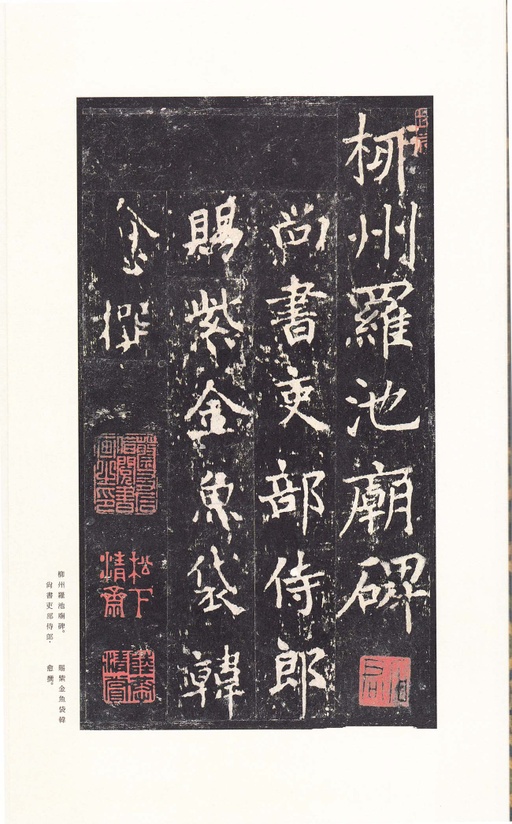 柳州羅池廟碑
尚書吏部侍郎
賜紫金魚袋韓
愈撰
松下
清齋
柳州羅池廟碑。
尚書吏部侍郎．
賜紫金魚袋韓
愈撰。